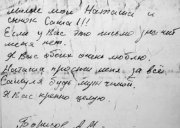 милые мои Наташа и
сынок Саша!!!
Если у Вас это письмо уже нет
меня нет.
Я Вас обоих очень люблю.
Наташа прости меня за всё
Сашуля будь мужчиной.
Я Вас крепко целую.
Борисов А.М.